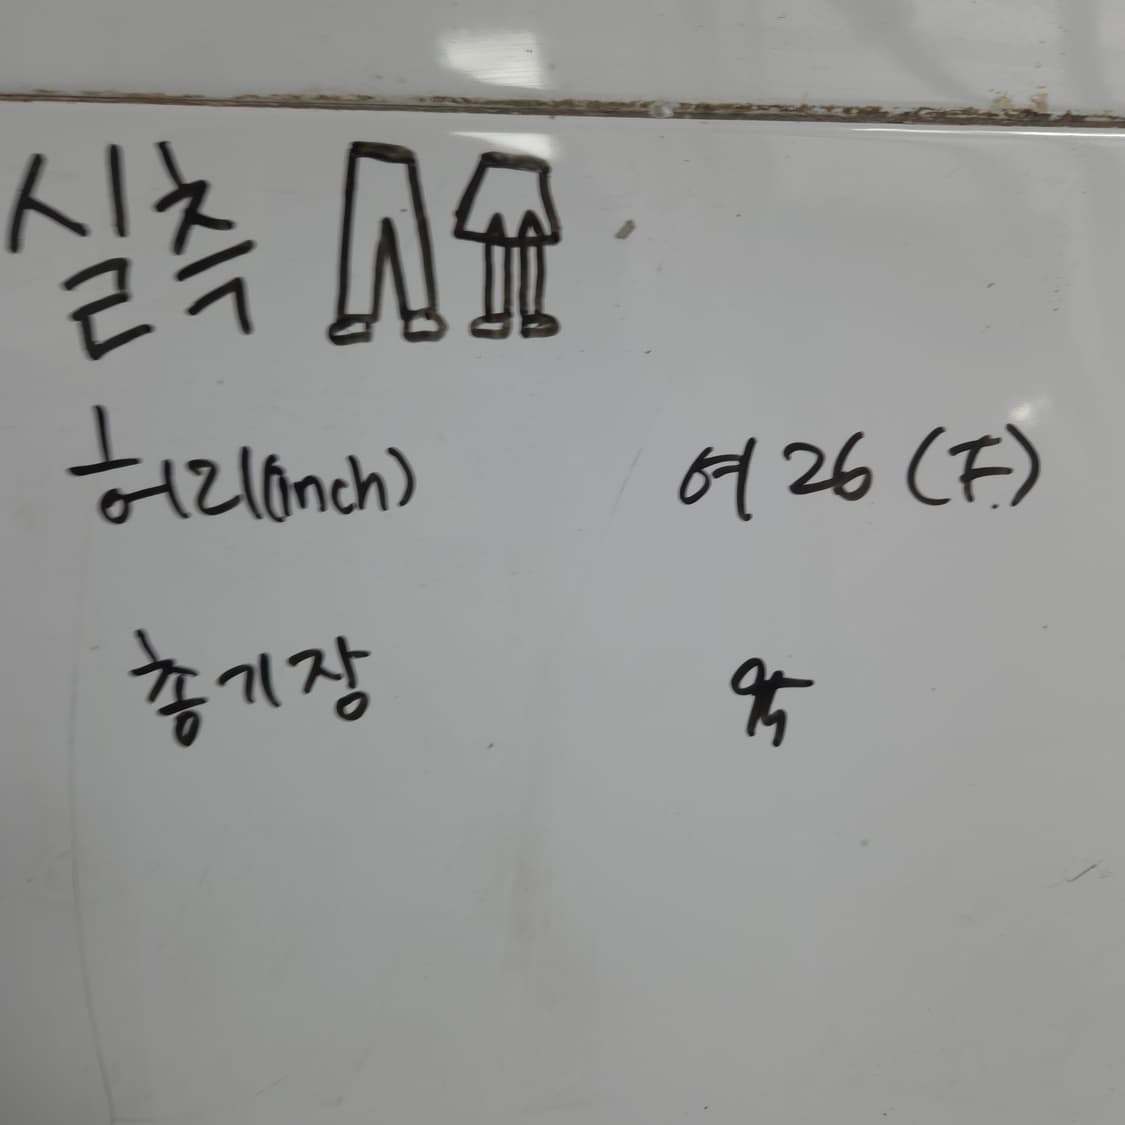 실측
허리(inch) 여 26 (F.)
총기장